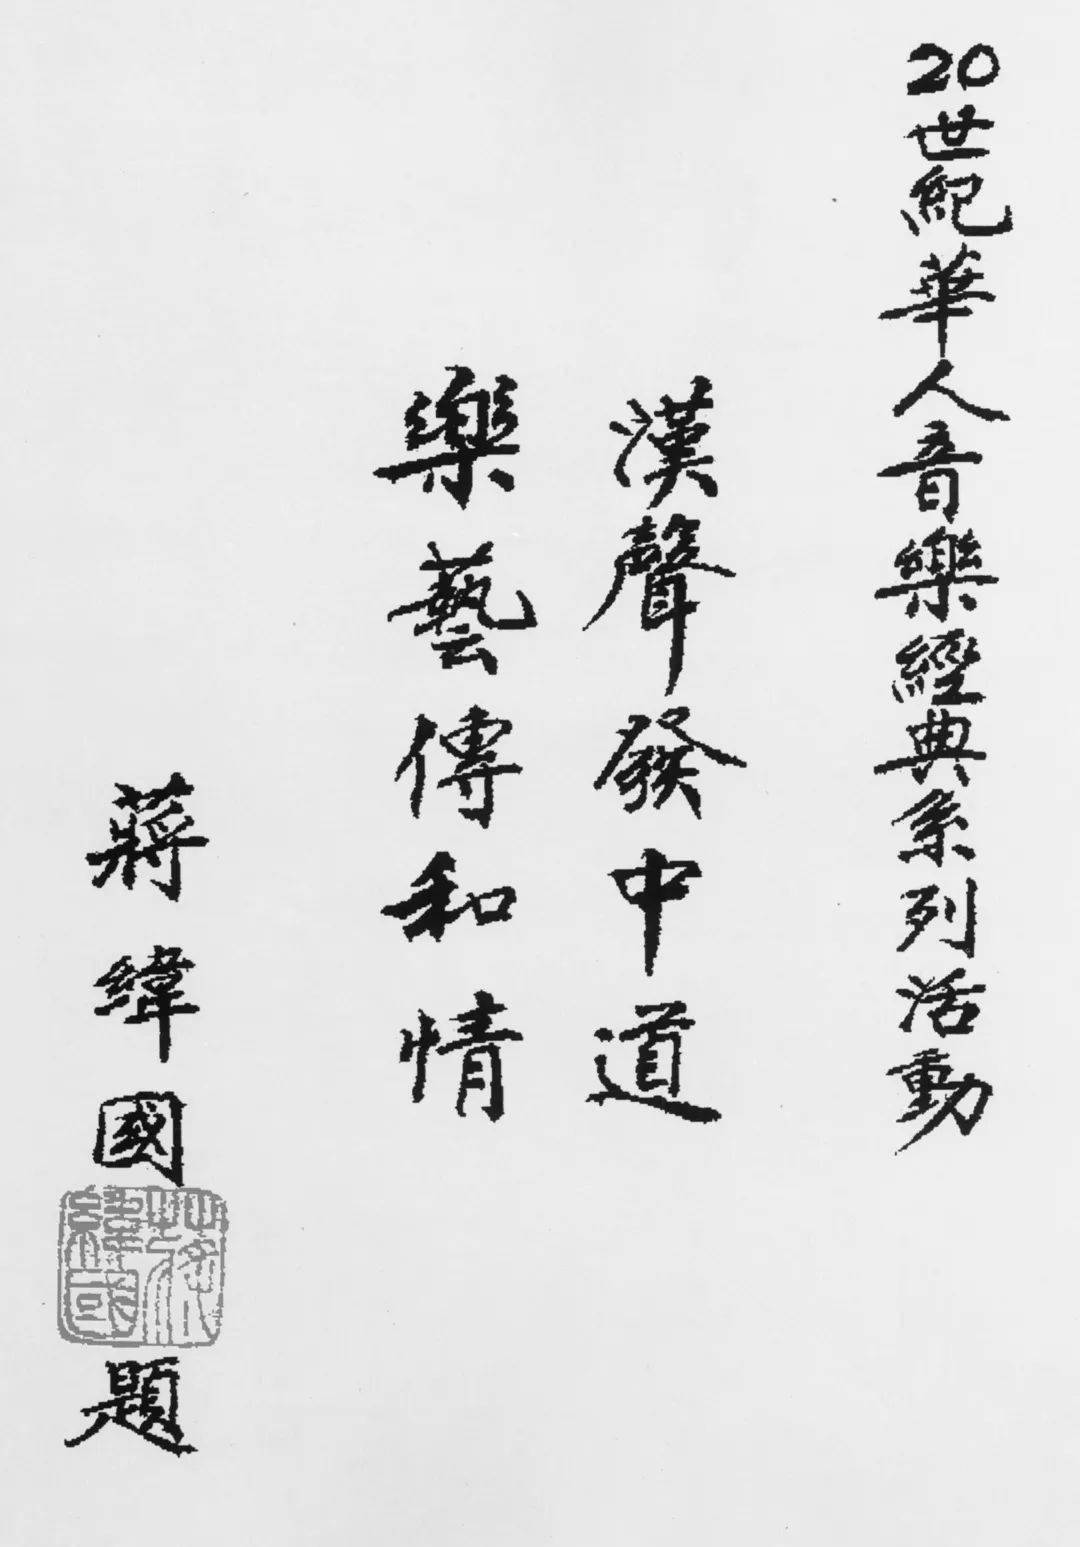 20世紀華人音樂經典系列活動
漢聲發中道
樂藝傳和情
蔣緯國題
蔣緯國